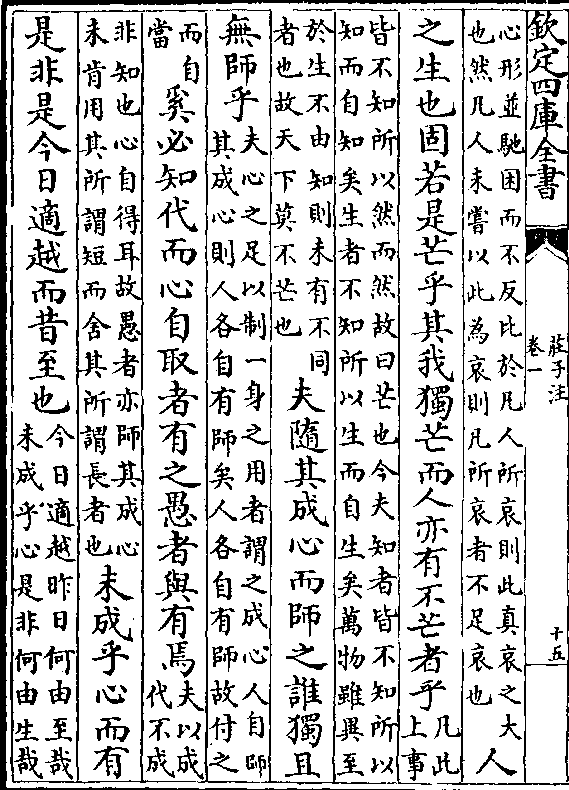 欽定四庫全書
莊子注
卷一
十五
心形並馳困而不反比於凡人所哀則此真哀之大
也然凡人未嘗以此為哀則凡所哀者不足哀也
人
之生也固若是芒乎其我獨芒而人亦有不芒者乎
凡此
上事
皆不知所以然而然故曰芒也今夫知者皆不知所以
知而自知矣生者不知所以生而自生矣萬物雖異至
於生不由知則未有不同
者也故天下莫不芒也
夫隨其成心而師之誰獨且
無師乎
夫心之足以制一身之用者謂之成心人自師
其成心則人各自有師矣人各自有師故付之
而自
當
奚必知代而心自取者有之愚者與有焉
夫以成
代不成
非知也心自得耳故愚者亦師其成心
未肯用其所謂短而舍其所謂長者也
未成乎心而有
是非是今日適越而昔至也
今日適越昨日何由至哉
未成乎心是非何由生哉